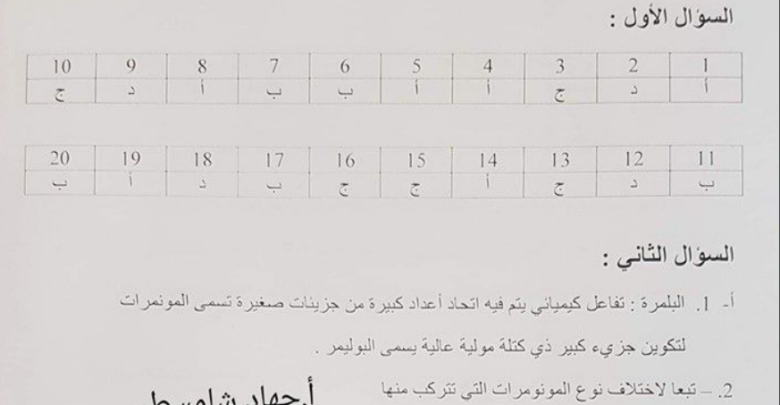 السؤال الأول :
1 2 3 4 5 6 7 8 9 10
أ د ج أ أ ب ب أ د ج
11 12 13 14 15 16 17 18 19 20
ب د ج أ ج ج ب د أ ب
السؤال الثاني :
أ- 1. البلمرة : تفاعل كيميائي يتم فيه اتحاد أعداد كبيرة من جزيئات صغيرة تسمى المونمرات
لتكوين جزيء كبير ذي كتلة مولية عالية يسمى البوليمر .
2. – تبعا لاختلاف نوع المونومرات التي تتركب منها
أ.جهاد